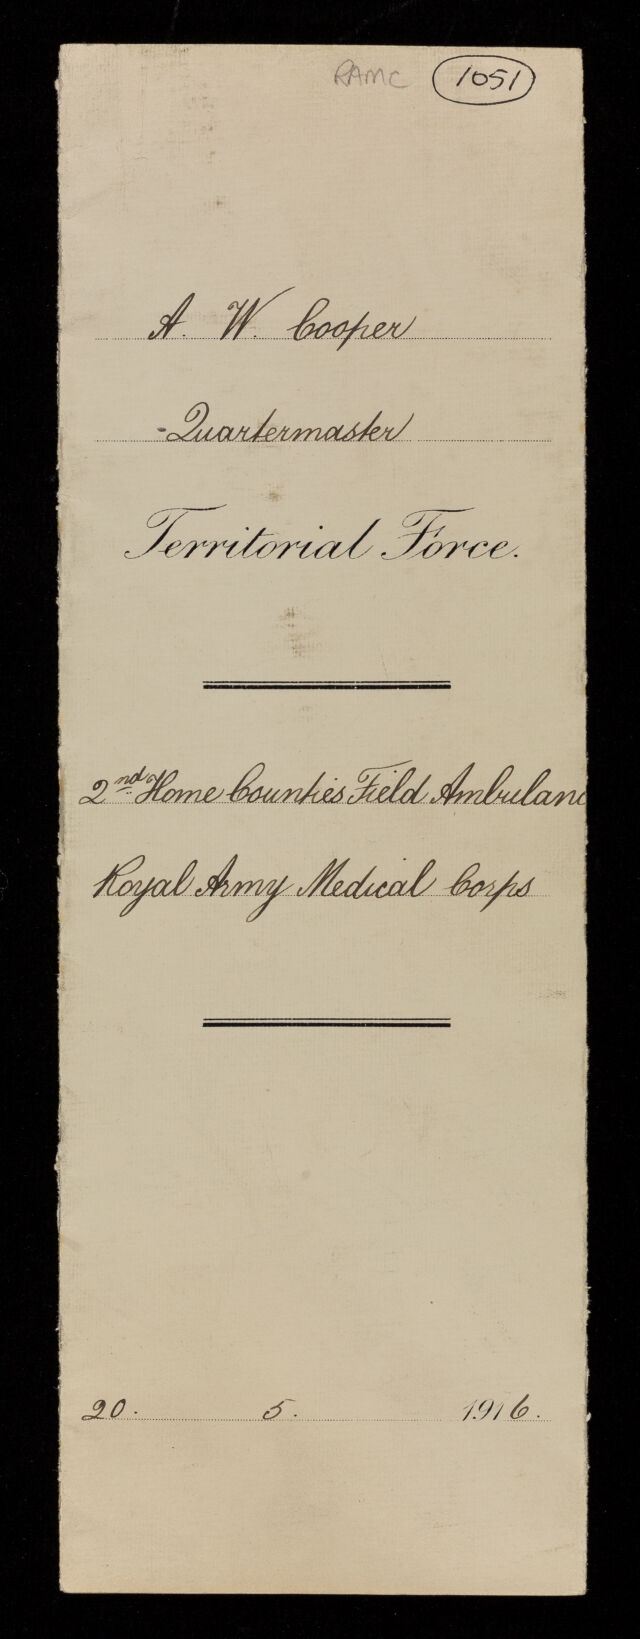 RAMC 1051
A. W. Cooper
Quartermaster
Territorial Force.
2nd Home Counties Field Ambulanc
Royal Army Medical Corps
20. 5. 1916.